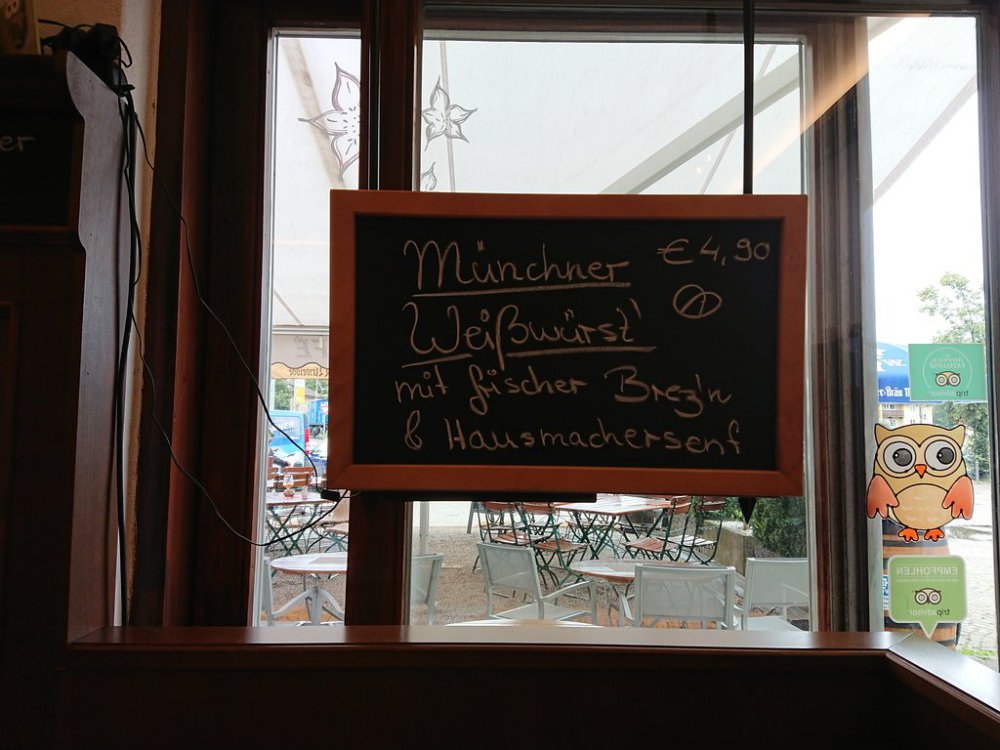 er
Münchner € 4,90
Weißwürst'
mit frischer Brez'n
& Hausmachersenf
tripadvisor
EMPFOHLEN
tripadvisor